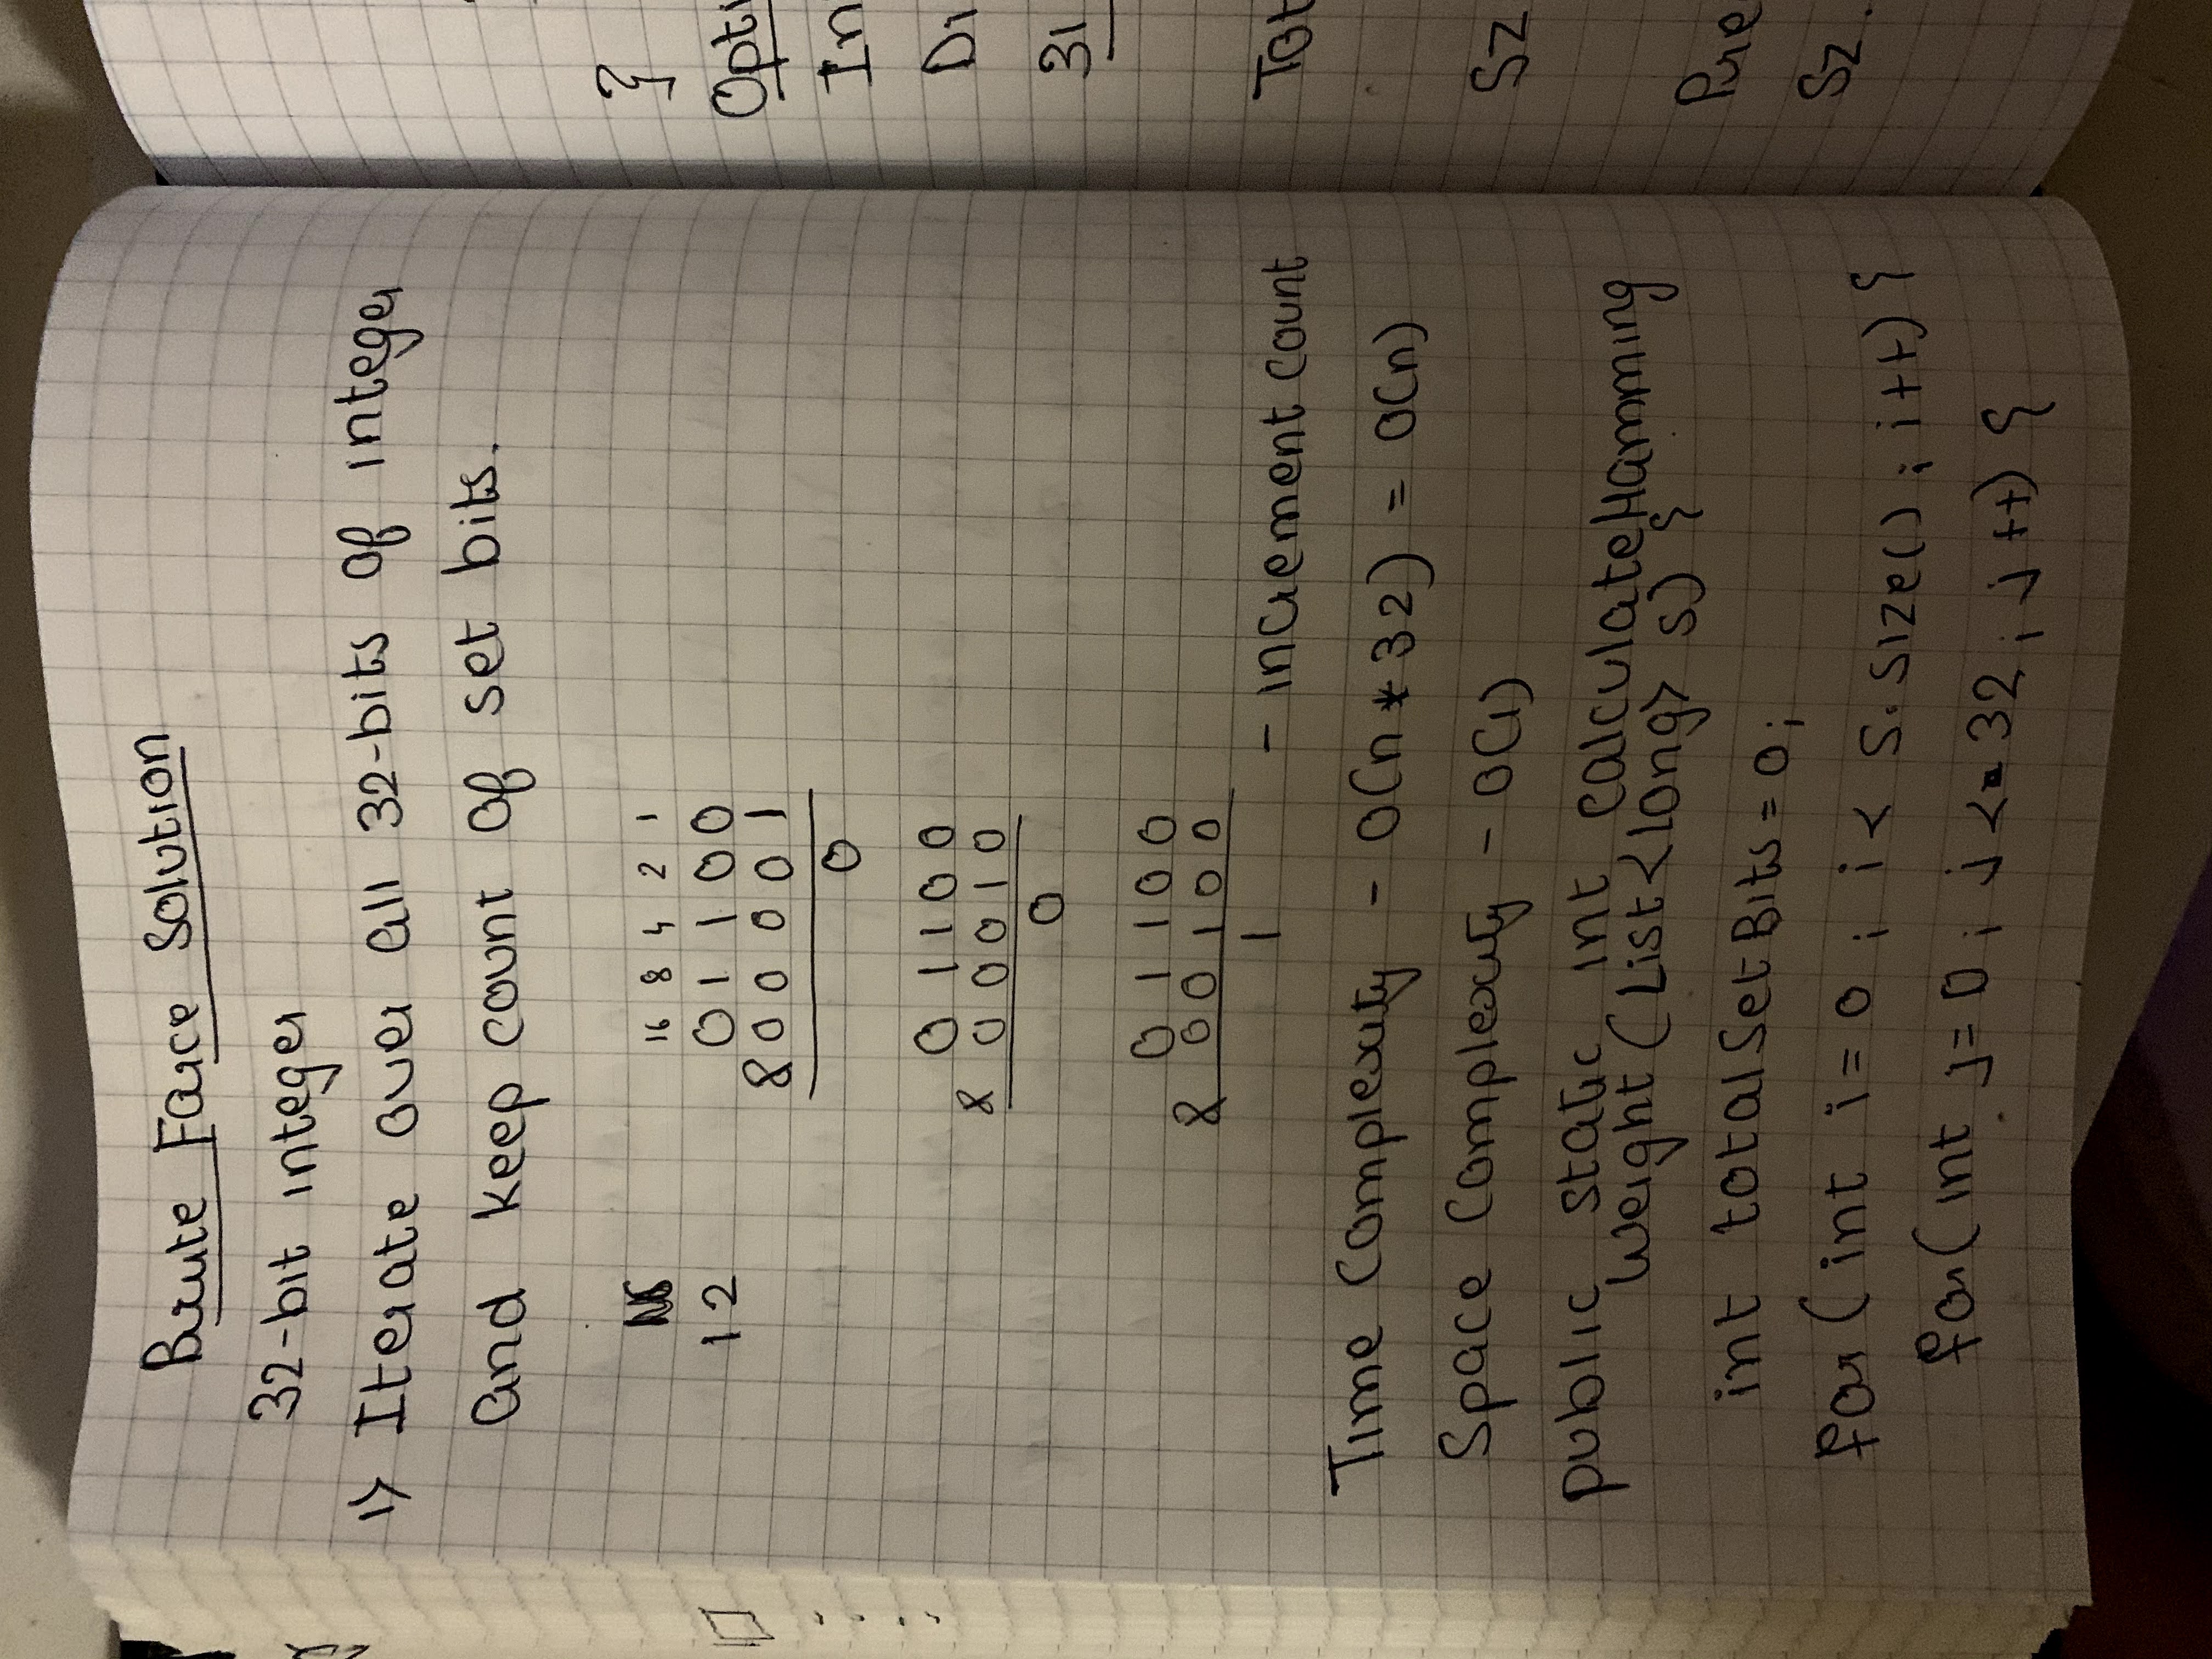 Brute Force Solution
32-bit integer
1) Iterate over all 32-bits of integer
and keep count of set bits.
16 8 4 2 1
12 0 1 1 0 0
& 0 0 0 0 1
0
0 1 1 0 0
& 0 0 0 1 0
0
0 1 1 0 0
& 0 0 1 0 0
1 - increment count
Time Complexity - O(n * 32) = O(n)
Space Complexity - O(1)
public static int calculateHamming
Weight (List<long> s) {
int totalSetBits = 0;
for ( int i = 0 ; i < s.size() ; i++) {
for ( int j = 0 ; j < 32 ; j++) {
}
Opti
In
Di
31
Tot
Sz
Pre
Sz.